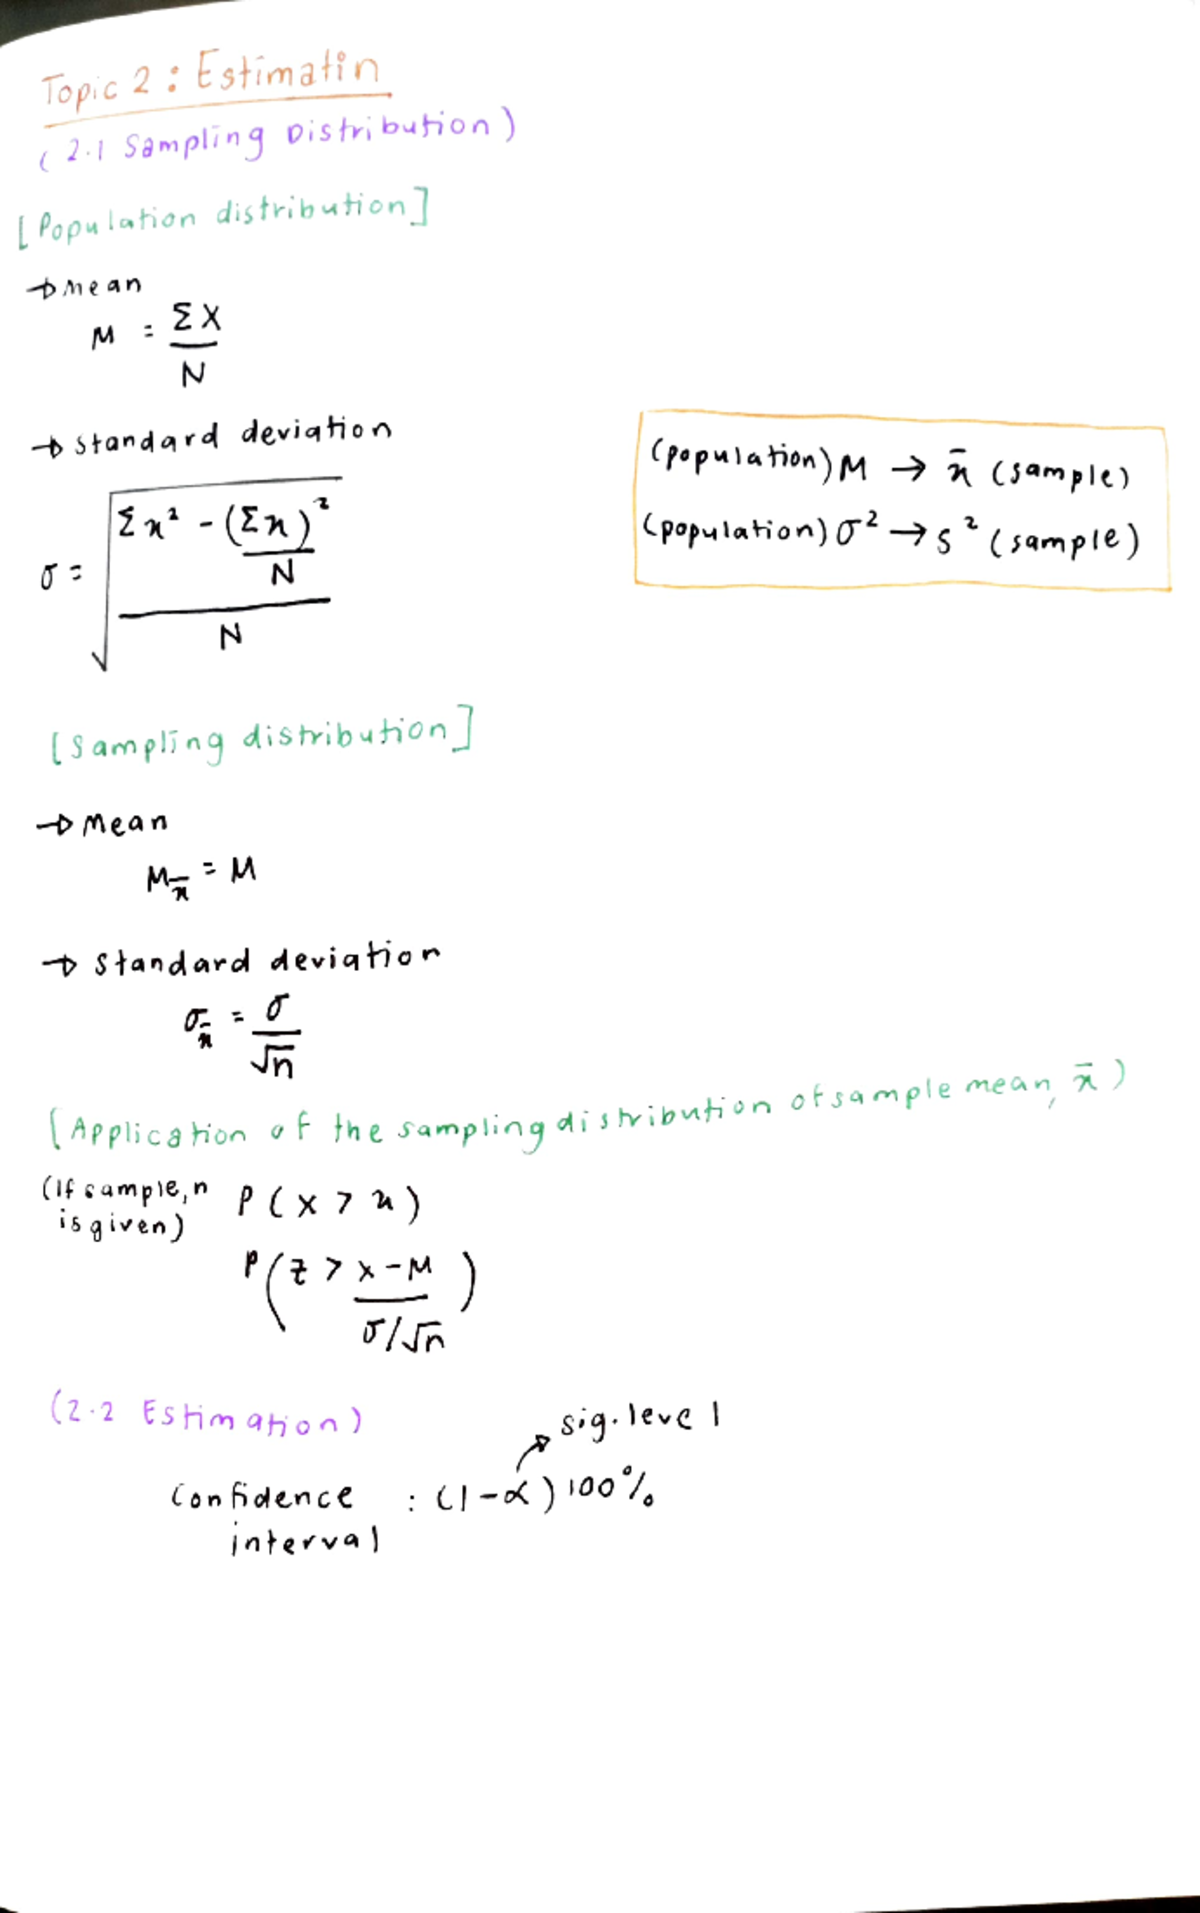 Topic 2 : Estimatin
( 2.1 Sampling Distribution )
[ Population distribution ]
→ Mean
M = ΣX / N
→ standard deviation
σ = √((Σx² - (Σx)²/N) / N)
(population) M → x̄ (sample)
(population) σ² → s² (sample)
[ Sampling distribution ]
→ Mean
M x̄ = M
→ Standard deviation
σ x̄ = σ / √n
[ Application of the sampling distribution of sample mean, x̄ )
(If sample, n is given) P ( X > x )
P ( z > x - M / σ/√n )
(2.2 Estimation)
sig. level
Confidence interval : (1 - α) 100%